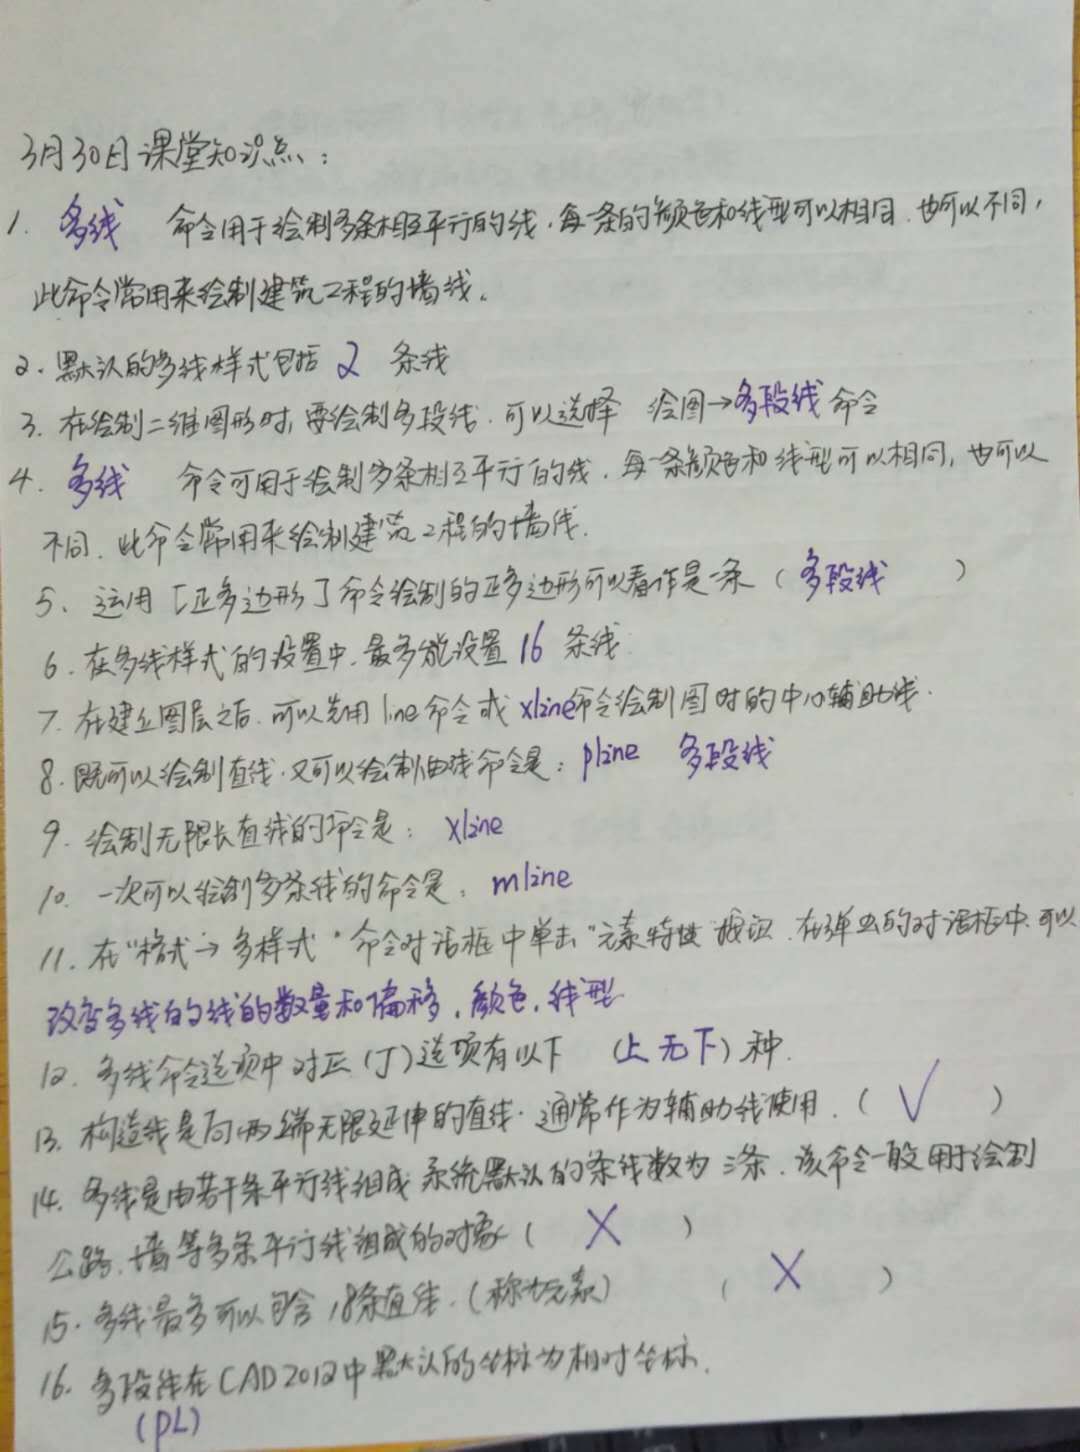 3月30日课堂知识点：
1. 多线 命令用于绘制多条相互平行的线，每一条的颜色和线型可以相同，也可以不同，
此命令常用来绘制建筑工程的墙线。
2. 默认的多线样式包括 2 条线
3. 在绘制二维图形时，要绘制多段线，可以选择 绘图→多段线 命令
4. 多线 命令可用于绘制多条相互平行的线，每一条颜色和线型可以相同，也可以
不同，此命令常用来绘制建筑工程的墙线.
5、运用「正多边形」命令绘制的正多边形可以看作是一条（多段线 ）
6. 在多线样式的设置中，最多能设置 16 条线
7. 在建立图层之后，可以先用 line 命令或 xline命令绘制图时的中心辅助线.
8. 既可以绘制直线，又可以绘制曲线命令是：pline 多段线
9. 绘制无限长直线的命令是： xline
10. 一次可以绘制多条线的命令是：mline
11. 在"格式→多样式"命令对话框中单击"元素特性"按钮，在弹出的对话框中，可以
改变多线的线的数量和偏移，颜色，线型
12. 多线命令选项中对正（J）选项有以下 （上 无 下）种.
13. 构造线是向两端无限延伸的直线，通常作为辅助线使用.（ √ ）
14. 多线是由若干条平行线组成 系统默认的条线数为 三条，该命令一般用于绘制
公路、墙等多条平行线组成的对象（ × ）
15. 多线最多可以包含 18条直线.（称为元素） （ × ）
16. 多段线在CAD2012中默认的坐标为相对坐标.
(PL)